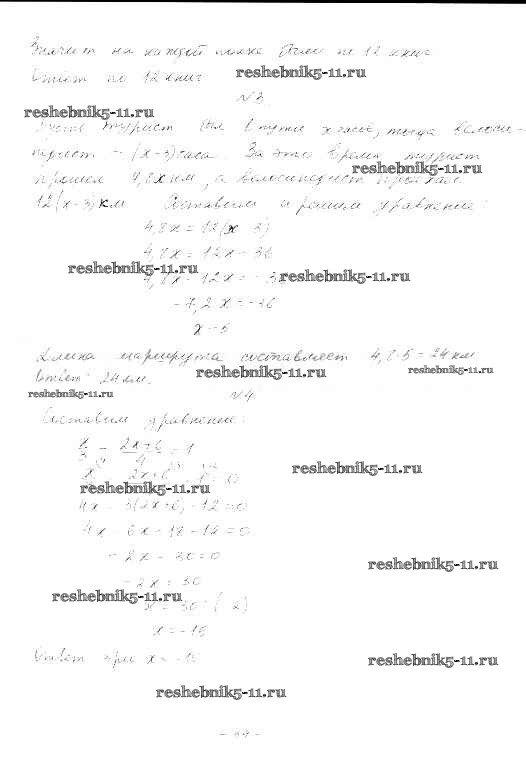 Значит на каждой полке были по 12 книг
Ответ по 12 книг
reshebnik5-11.ru
№3.
reshebnik5-11.ru
Пусть турист был в пути x часов, тогда велоси-
педист - (x-3) часа. За это время турист
reshebnik5-11.ru
прошел 4,8x км, а велосипедист проехал
12(x-3) км Составим и решим уравнение:
4,8x = 12(x 3)
4,8x = 12x - 36
reshebnik5-11.ru reshebnik5-11.ru
4,8x - 12x = - 36
-7,2x = -36
x - 5
Длина маршрута составляет 4,8·5 = 24 км
Ответ: 24 км.
reshebnik5-11.ru reshebnik5-11.ru
reshebnik5-11.ru
№4
Составим уравнение:
x/3 - 2x+6/4 = 1
reshebnik5-11.ru
reshebnik5-11.ru
4x - 3(2x+6) - 12 = 0
4x - 6x - 18 - 12 = 0
-2x - 30 = 0
reshebnik5-11.ru
-2x = 30
reshebnik5-11.ru
x = 30 : (-2)
x = -15
Ответ при x = -15
reshebnik5-11.ru
reshebnik5-11.ru